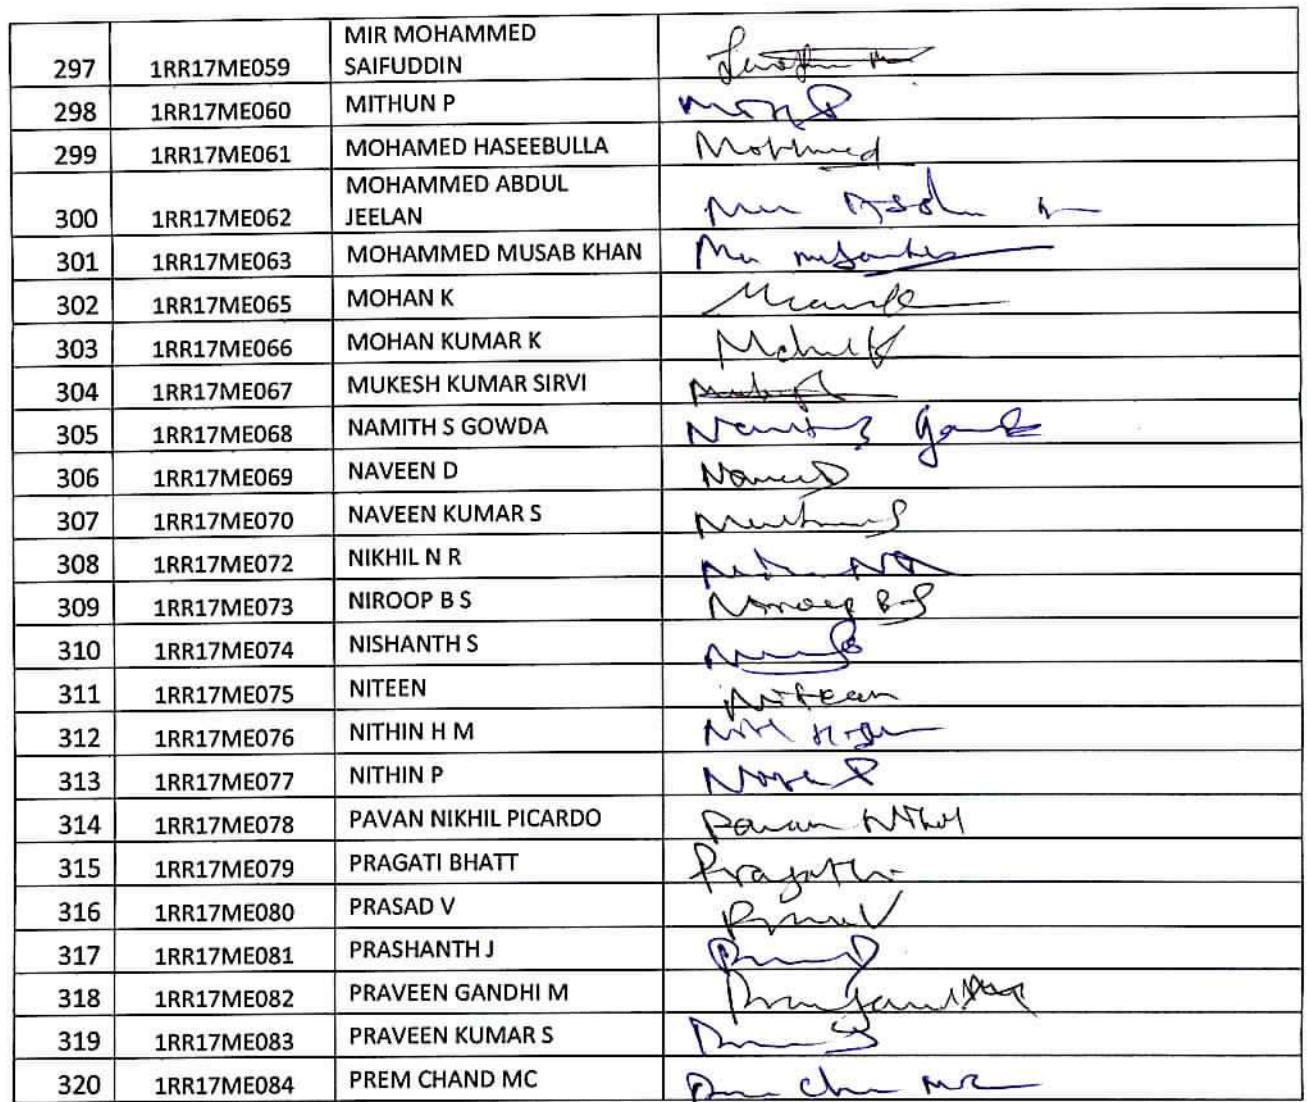 MIR MOHAMMED
297 1RR17ME059 SAIFUDDIN
298 1RR17ME060 MITHUN P
299 1RR17ME061 MOHAMED HASEEBULLA Mohmmed
MOHAMMED ABDUL
300 1RR17ME062 JEELAN
301 1RR17ME063 MOHAMMED MUSAB KHAN
302 1RR17ME065 MOHAN K
303 1RR17ME066 MOHAN KUMAR K
304 1RR17ME067 MUKESH KUMAR SIRVI
305 1RR17ME068 NAMITH S GOWDA
306 1RR17ME069 NAVEEN D
307 1RR17ME070 NAVEEN KUMAR S
308 1RR17ME072 NIKHIL N R
309 1RR17ME073 NIROOP B S Niroop B S
310 1RR17ME074 NISHANTH S
311 1RR17ME075 NITEEN Niteen
312 1RR17ME076 NITHIN H M
313 1RR17ME077 NITHIN P
314 1RR17ME078 PAVAN NIKHIL PICARDO Pavan Nikhil
315 1RR17ME079 PRAGATI BHATT Pragathi
316 1RR17ME080 PRASAD V
317 1RR17ME081 PRASHANTH J
318 1RR17ME082 PRAVEEN GANDHI M
319 1RR17ME083 PRAVEEN KUMAR S
320 1RR17ME084 PREM CHAND MC